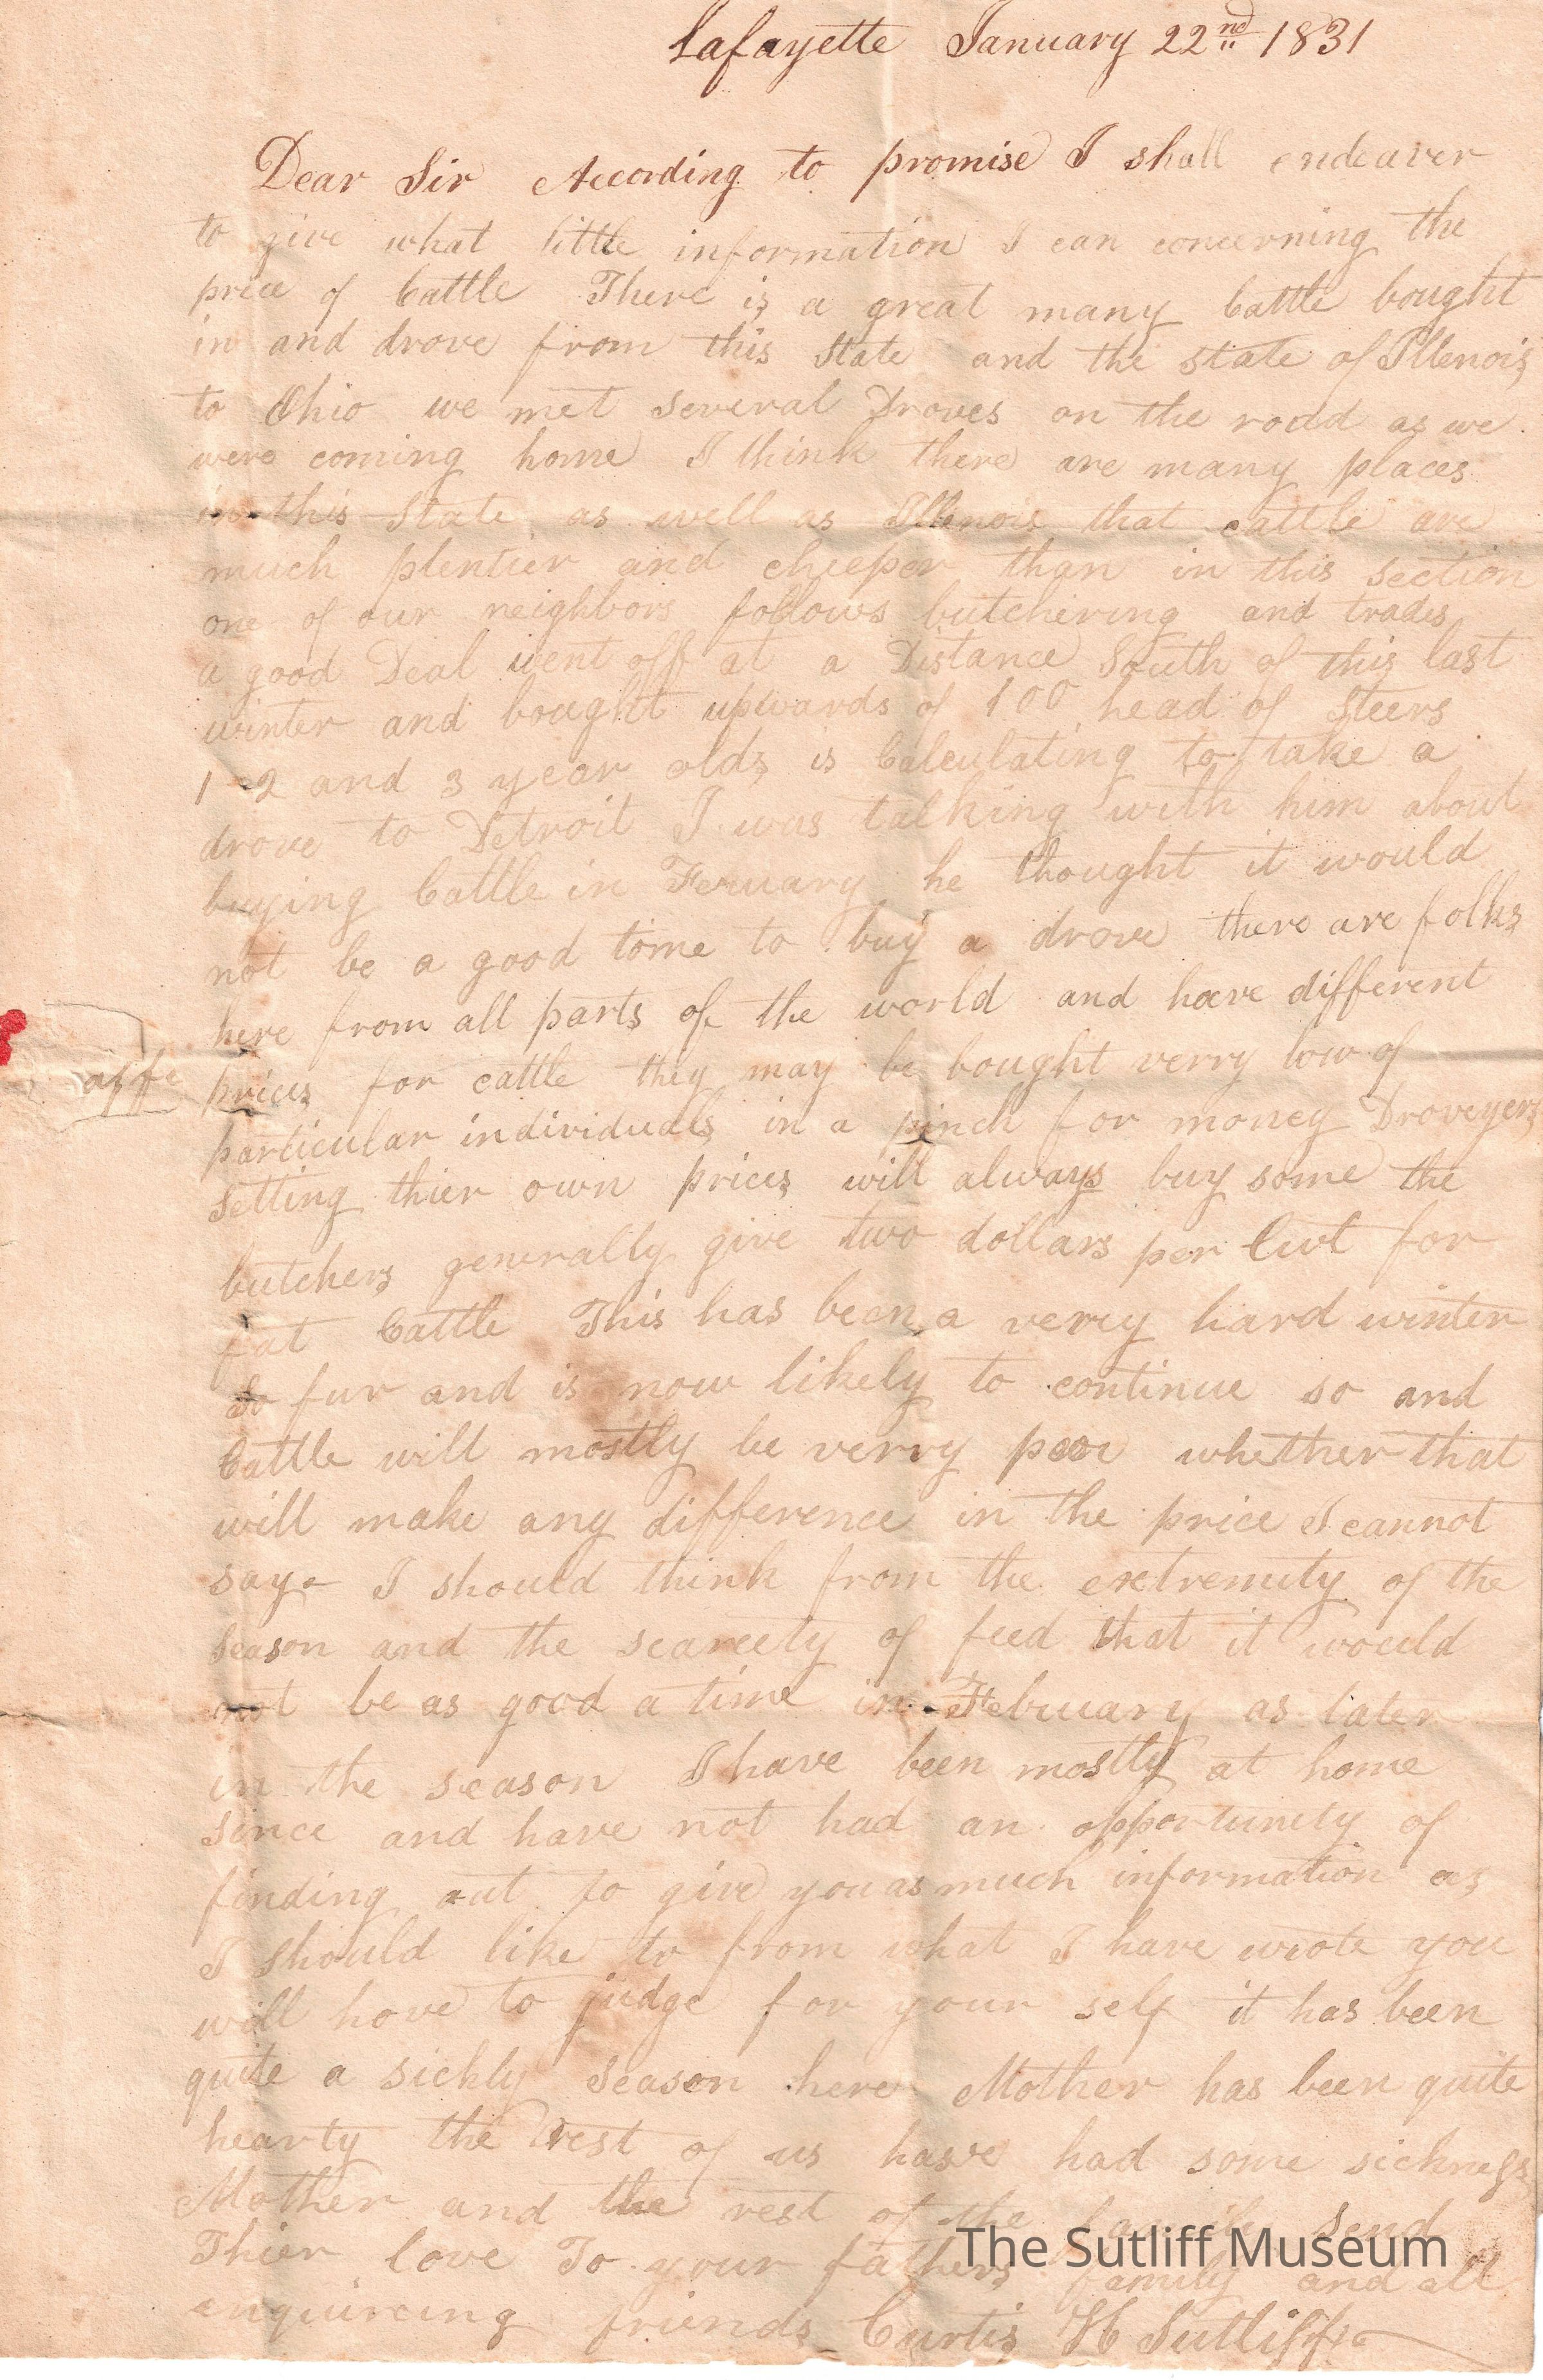 Lafayette January 22nd 1831
Dear Sir According to promise I shall endeaver
to give what little information I can concerning the
price of Cattle There is a great many Cattle bought
in and drove from this State and the state of Illenois
to Ohio we met several Droves on the rodd as we
were coming home I think there are many places
in this State as well as Illenois that cattle are
much plentier and cheeper than in this section
one of our neighbors follows butchering and trades
a good Deal went off at a Distance South of this last
winter and bought upwards of 100 head of Steers
1-2 and 3 year olds is Calculating to take a
drove to Detroit I was talking with him about
buying Cattle in Feruary he thought it would
not be a good tome to buy a drove there are folks
here from all parts of the world and have different
prices for cattle they may be bought verry low of
particular individuals in a pinch for money Droveyers
setting thier own prices will always buy some the
butchers generally give two dollars per Cwt for
fat Cattle This has been a verry hard winter
So fur and is now likely to continue so and
Cattle will mostly be verry poor whether that
will make any difference in the price I cannot
say- I should think from the extremity of the
season and the scarcety of feed that it would
not be as good a time in February as later
in the season I have been mostly at home
since and have not had an opportunity of
finding out to give you as much information as
I should like to from what I have wrote you
will have to judge for your self it has been
quite a sickly season here Mother has been quite
hearty the rest of us have had some sickness
Mother and the rest of the family send
Thier love To your fathers family and all
enquireing friends Curtis H Sutliff
The Sutliff Museum